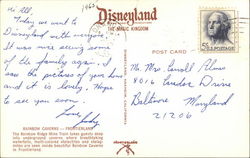 Hi All,
Today we went to
Disneyland with everyone.
It was nice seeing some
of the family again. I
saw the pictures of your home
and it is lovely. Hope
to see you soon.
Love,
RAINBOW CAVERNS — FRONTIERLAND
The Rainbow Ridge Mine Train takes guests deep
into underground caverns where breathtaking
waterfalls, multi-colored stalactites and stalag-
mites are seen inside beautiful Rainbow Caverns
in Frontierland.
Disneyland
THE MAGIC KINGDOM
POST CARD
5¢
Mr. Mrs. Carroll
8016
Baltimore Maryland
21206
Disneyland